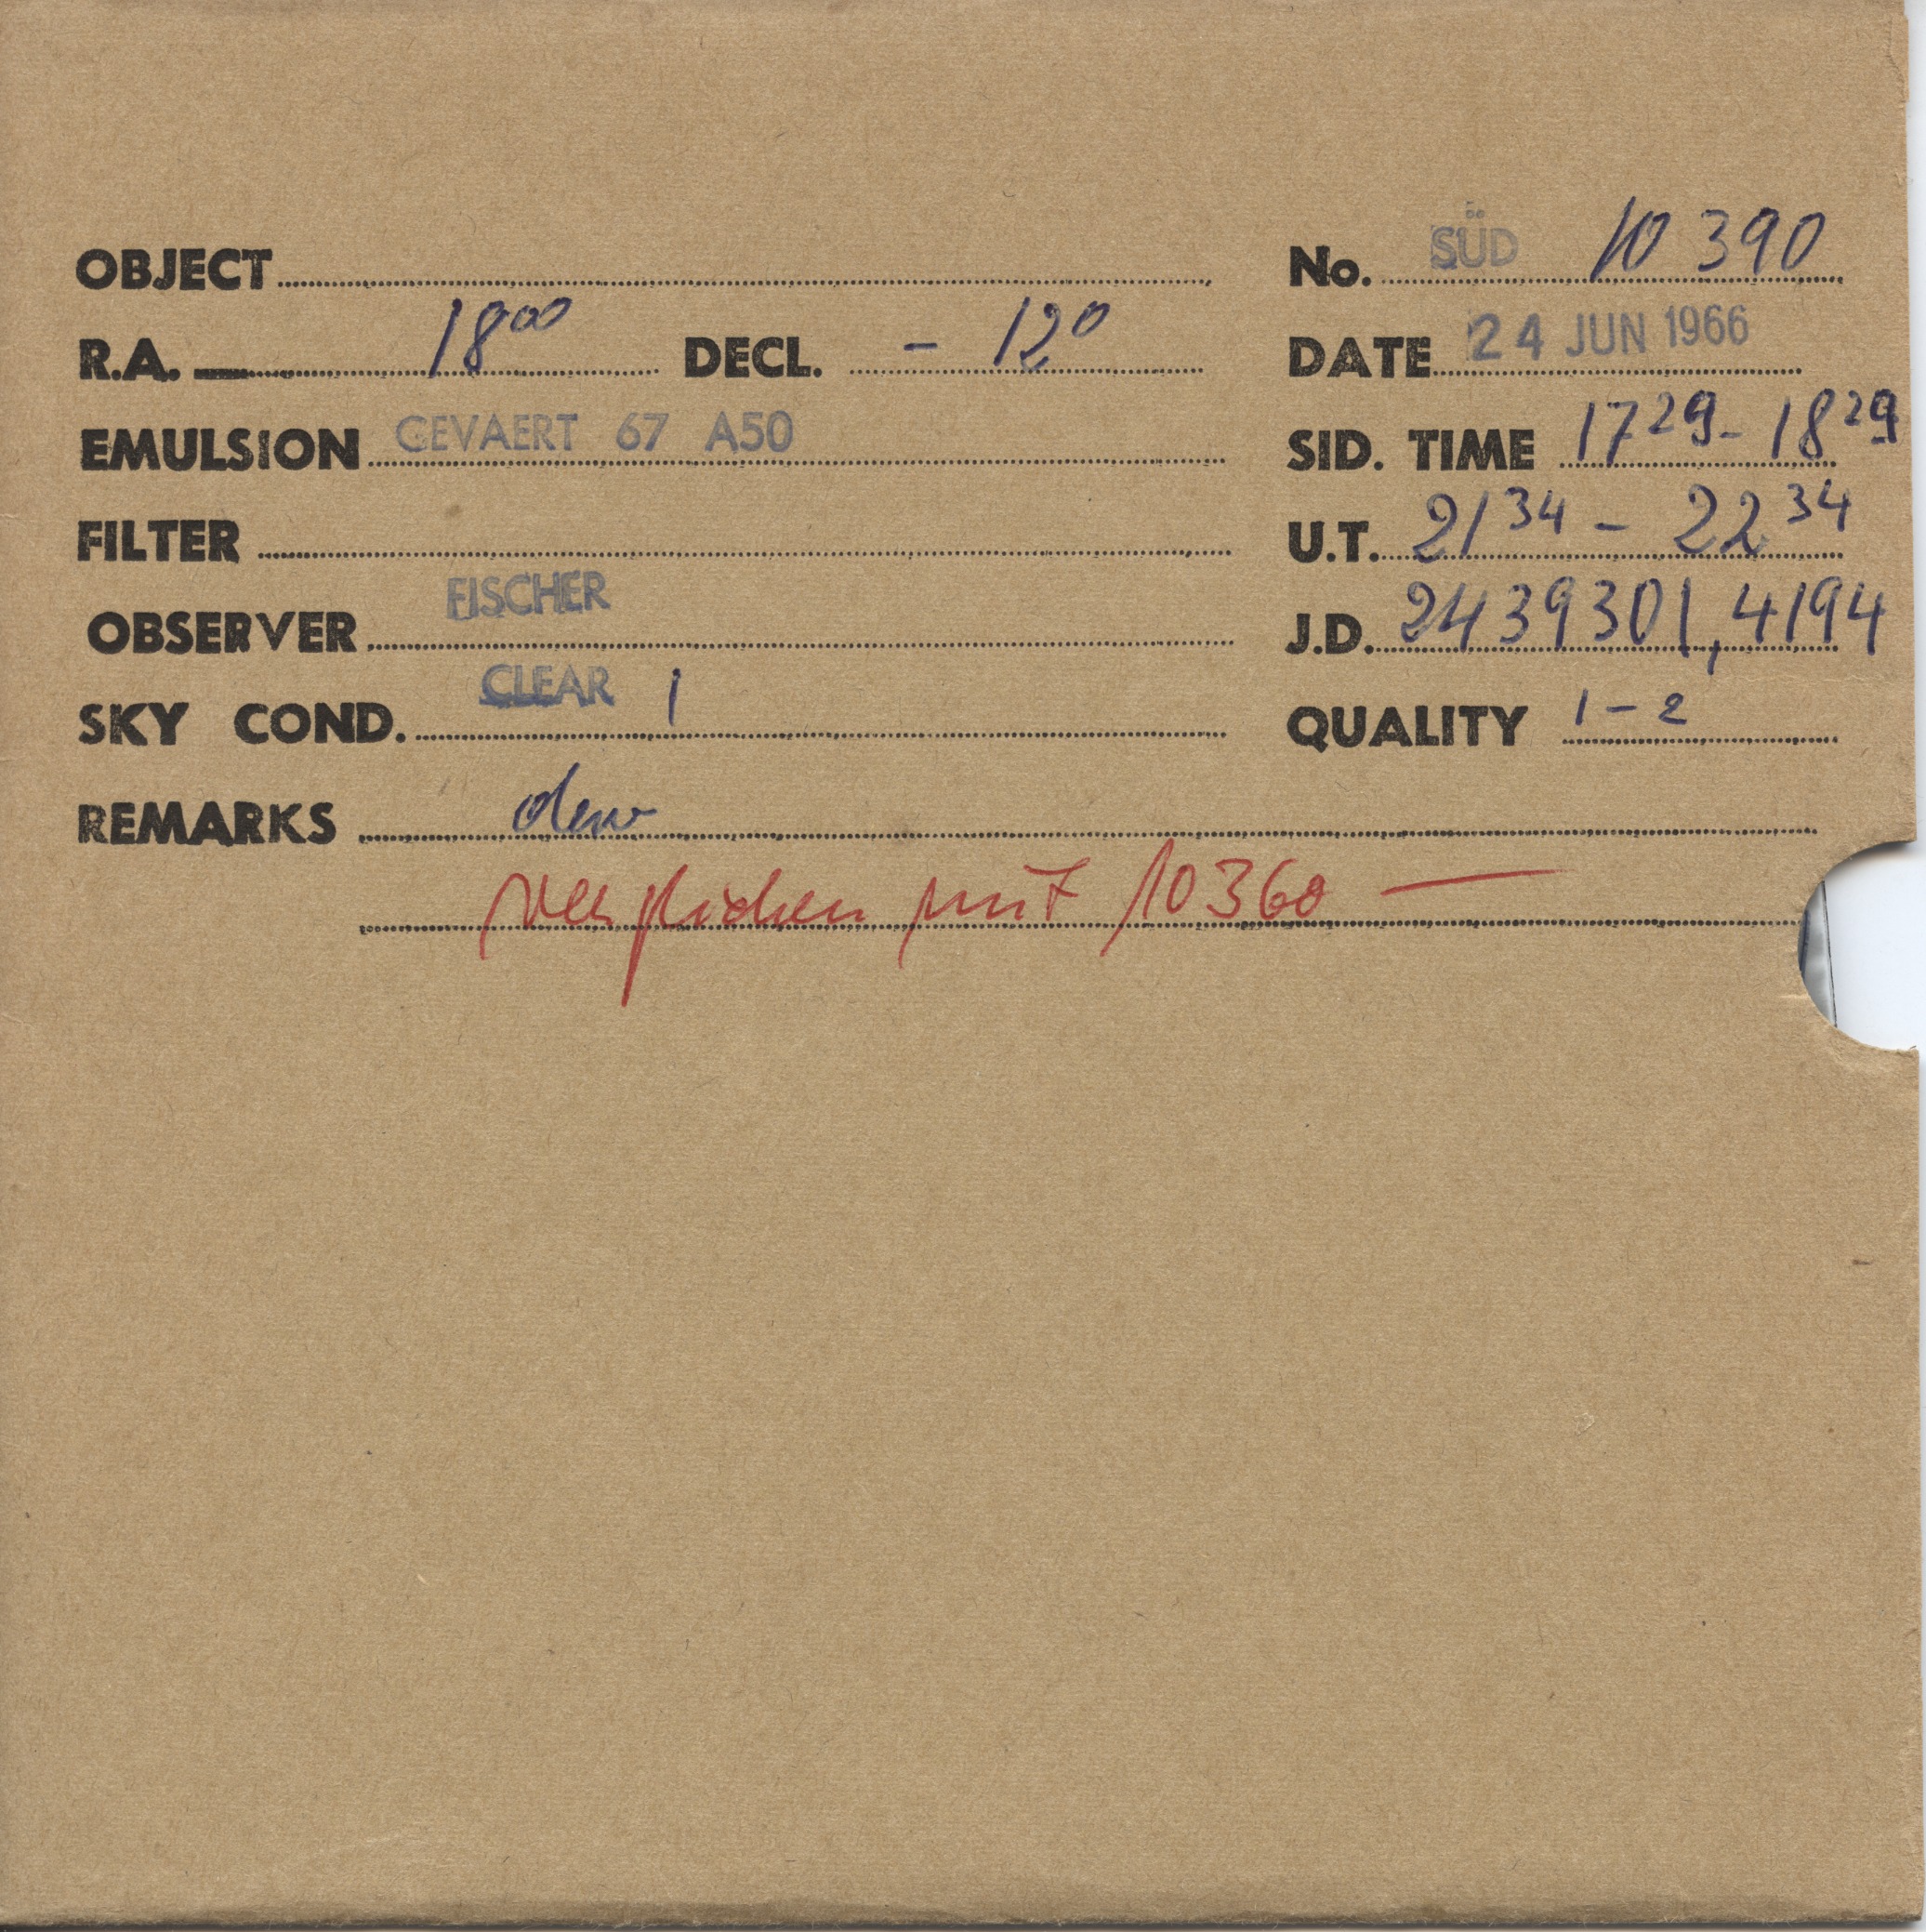 OBJECT No. SÜD 10 390
R.A. 18 00 DECL. - 12° DATE 24 JUN 1966
EMULSION GEVAERT 67 A50 SID. TIME 17 29 - 18 29
FILTER U.T. 21 34 - 22 34
OBSERVER FISCHER J.D. 2439301,4194
SKY COND. CLEAR 1 QUALITY 1-2
REMARKS dew
verglichen mit 10360 —